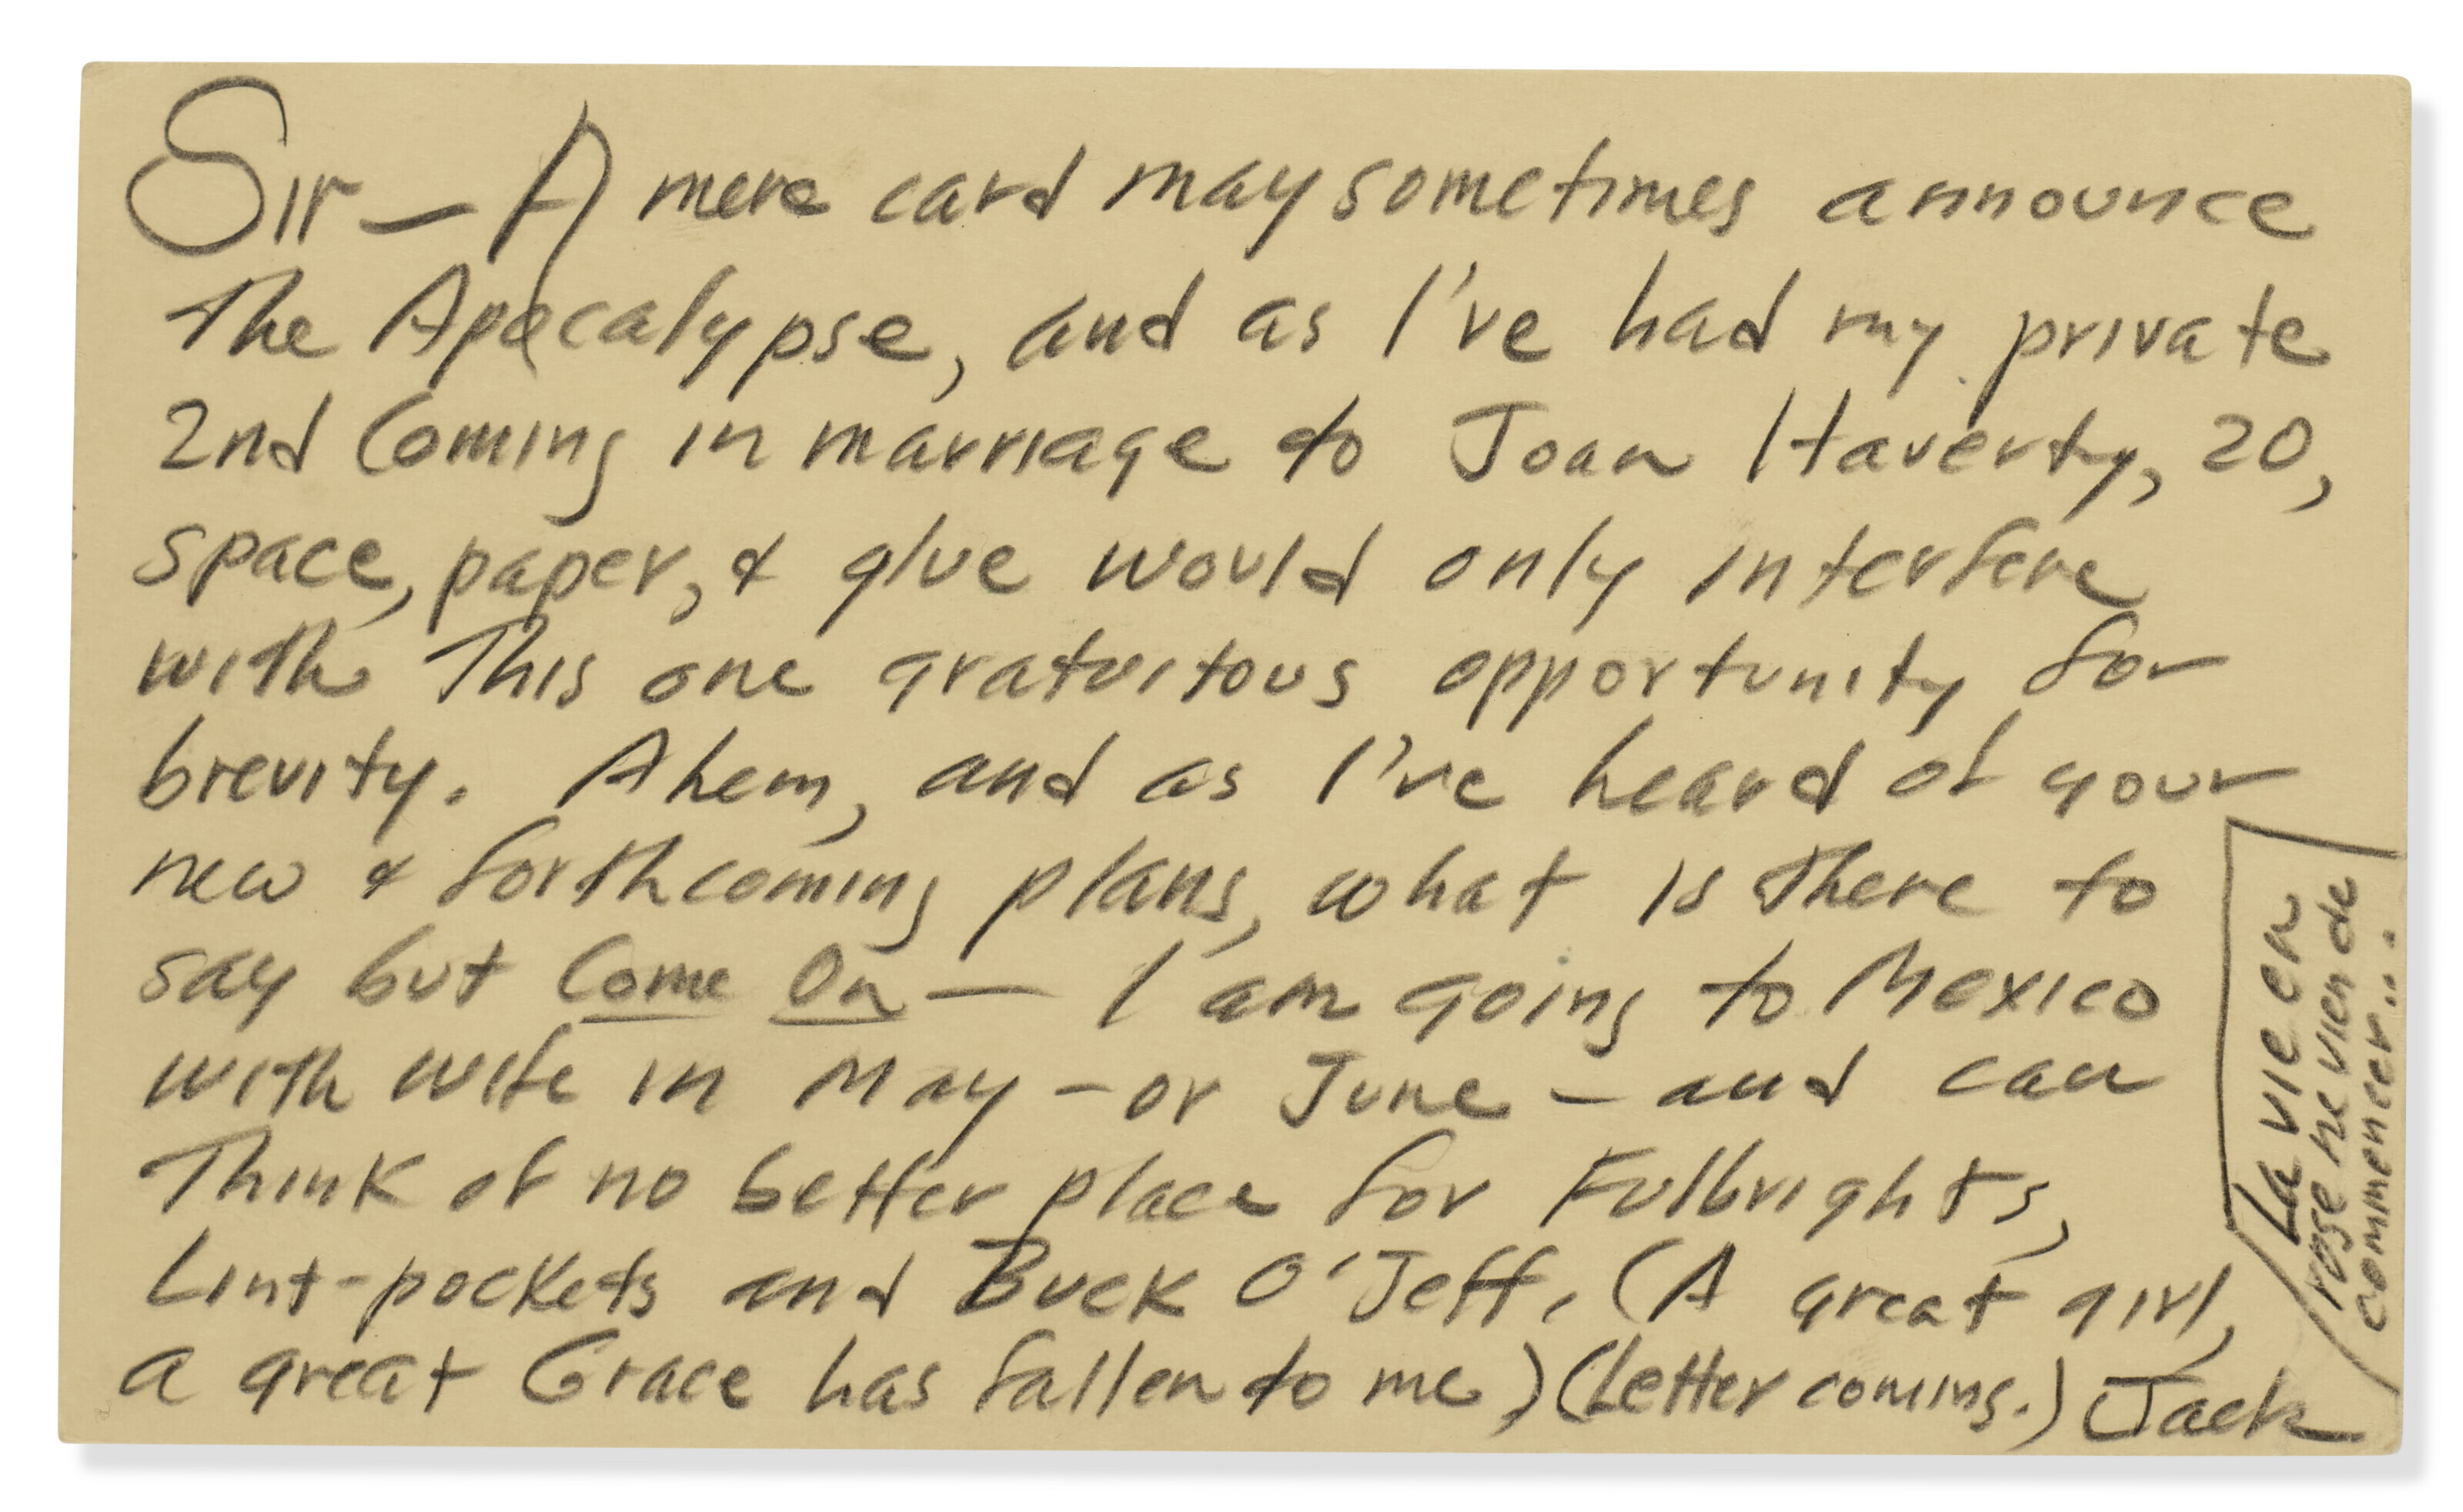 Sir — A mere card may sometimes announce
The Apocalypse, and as I've had my private
2nd Coming in marriage to Joan Haverty, 20,
space, paper, & glue would only interfere
with This one gratuitous opportunity for
brevity. Ahem, and as I've heard of your
new & forthcoming plans, what is There to
say but Come On — I am going to Mexico
with wife in May – or June – and can
Think of no better place for Fulbrights,
Lint-pockets and Buck O'Jeff. (A great girl,
a great Grace has fallen to me) (Letter coming.) Jack
La vie en
rose ne vien de
commencer...